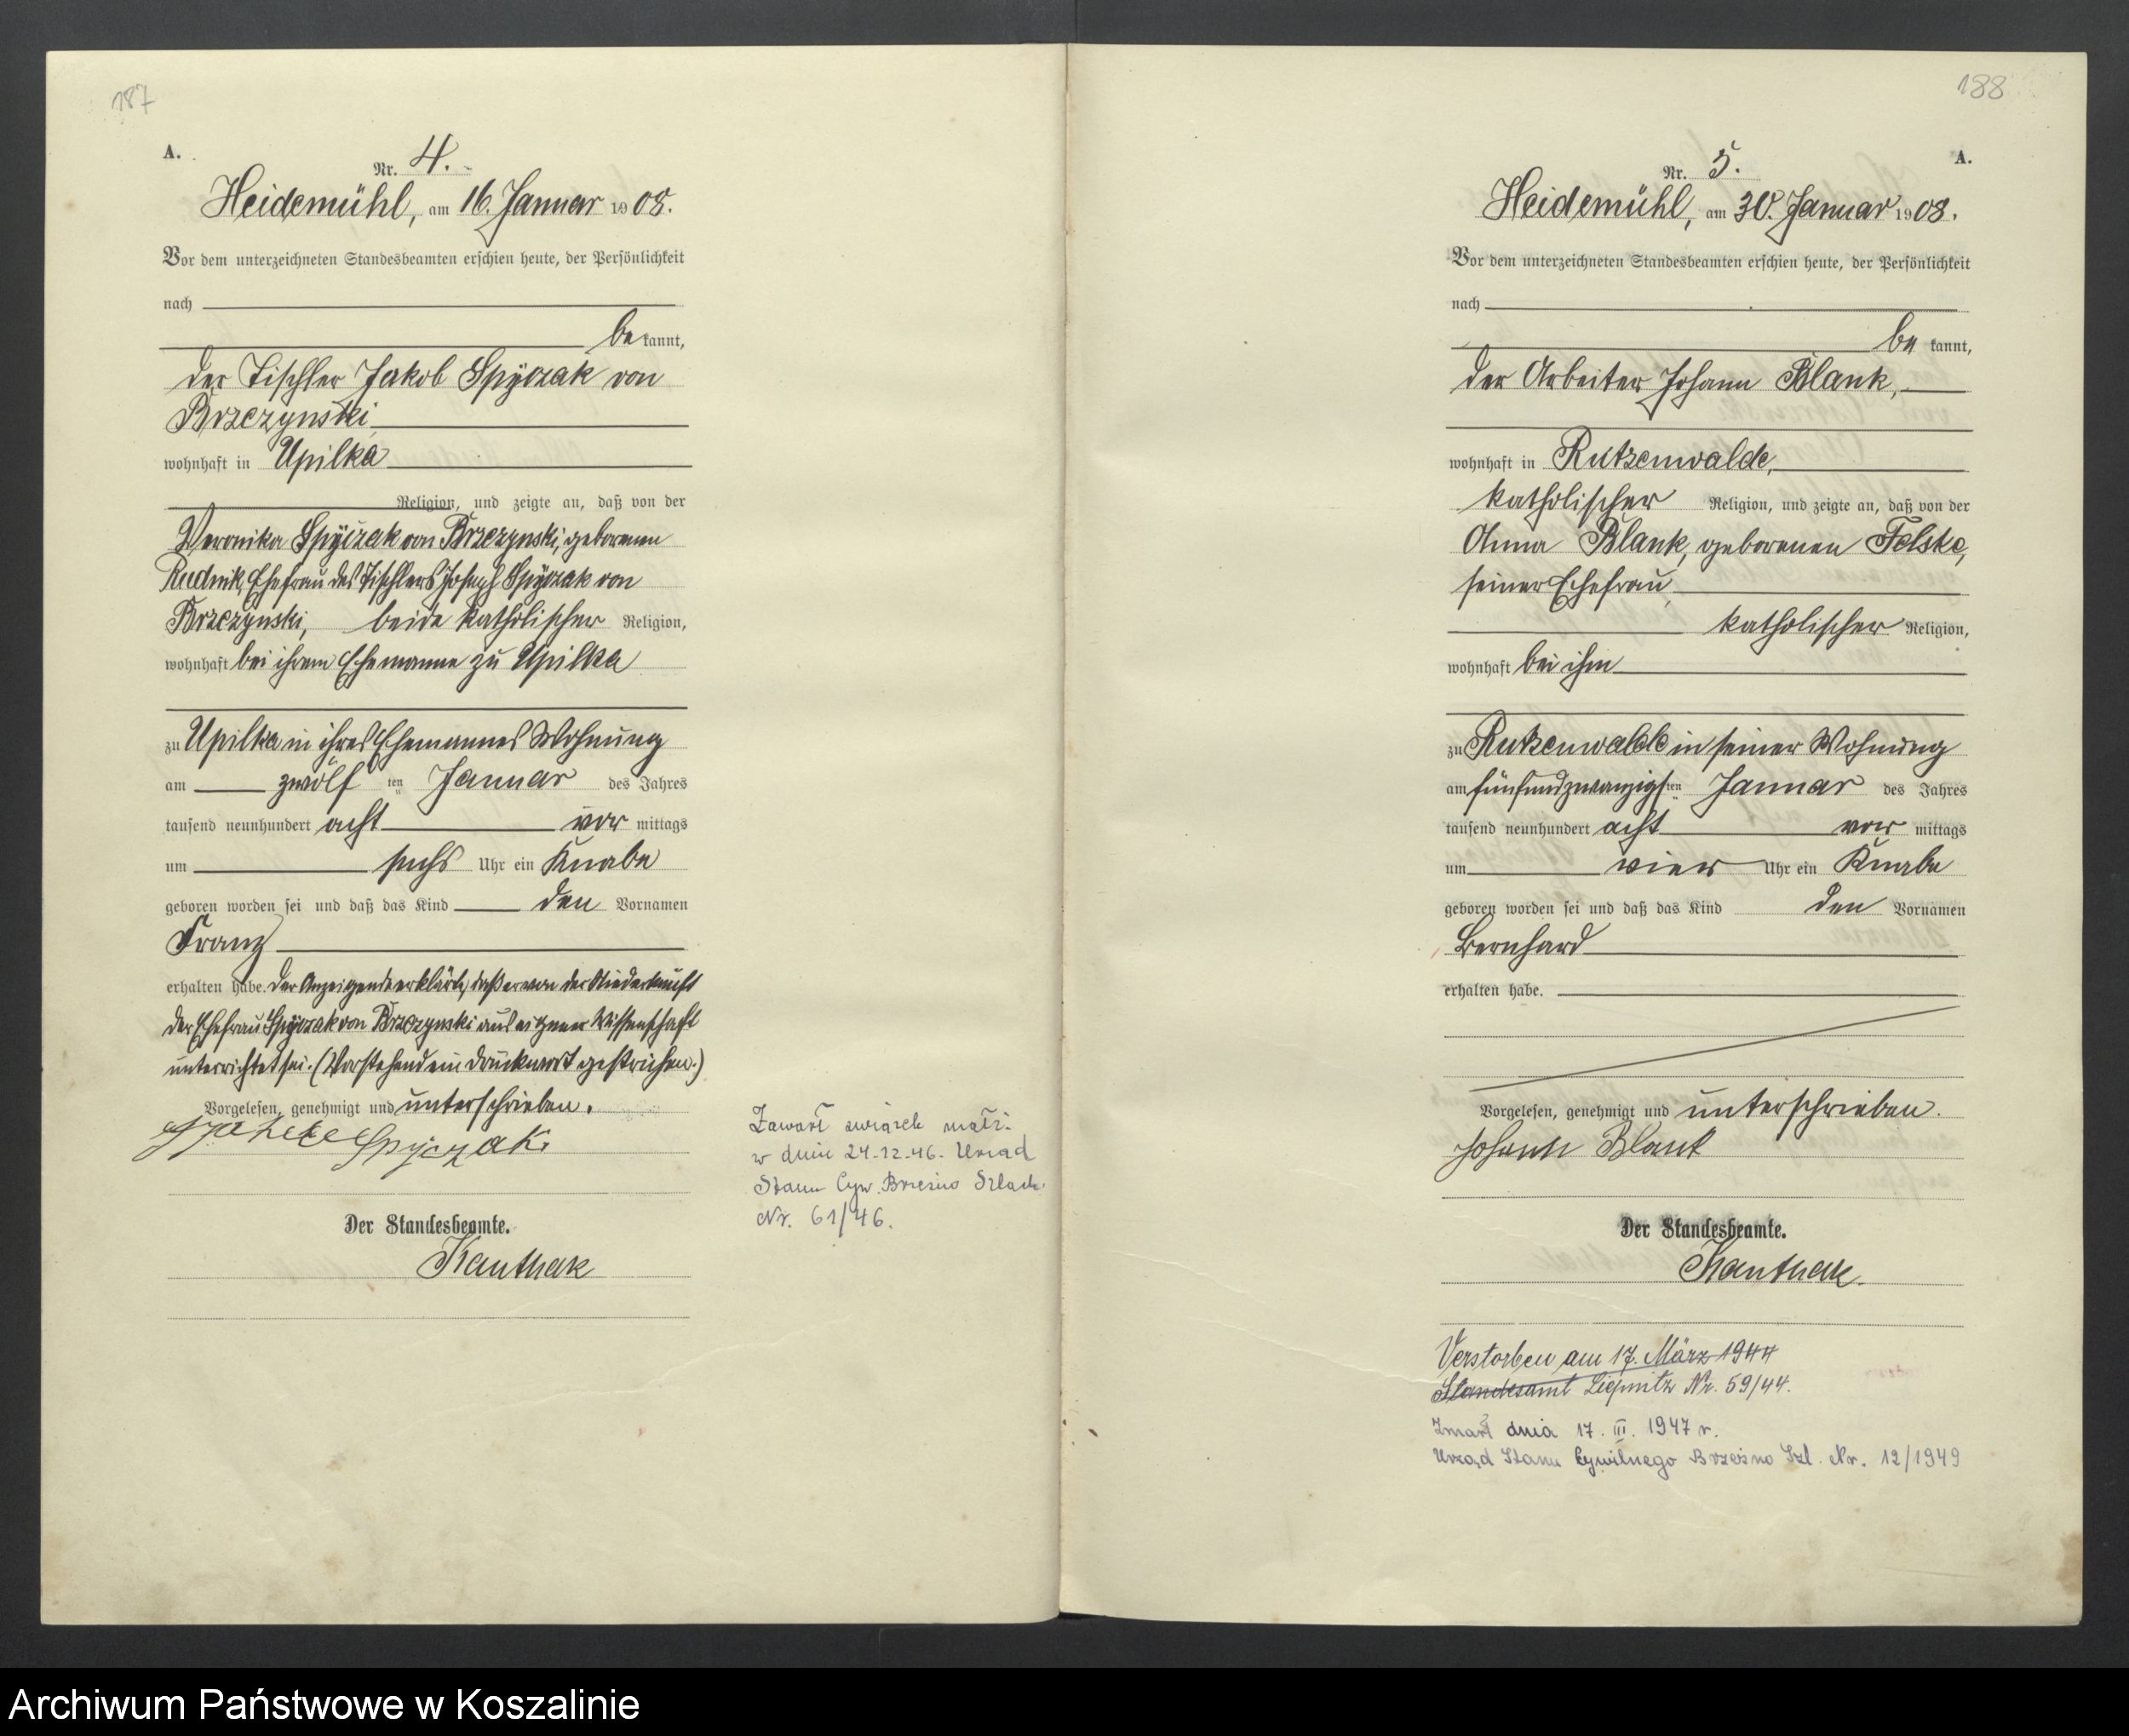 187
A.
Nr. 4.
Heidemühl, am 16. Januar 1908.
Vor dem unterzeichneten Standesbeamten erschien heute, der Persönlichkeit
nach
be kannt,
der Tischler Jakob Spyczak von
Brzezynski
wohnhaft in Upilka
Religion, und zeigte an, daß von der
Veronika Spyczak von Brzezynski, geborenen
Rudnik, Ehefrau des Tischlers Joseph Spyczak von
Brzezynski, beide katholischer Religion,
wohnhaft bei ihrem Ehemanne zu Upilka
zu Upilka in ihres Ehemannes Wohnung
am zwölf ten Januar des Jahres
tausend neunhundert acht vor mittags
um sechs Uhr ein Knabe
geboren worden sei und daß das Kind den Vornamen
Franz
erhalten habe. Der Anzeigende erklärte, daß er von der Niederkunft
der Ehefrau Spyczak von Brzezynski aus eigener Wissenschaft
unterrichtet sei. (Vorstehend ein Druckwort gestrichen.)
Vorgelesen, genehmigt und unterschrieben.
Spyczak
Der Standesbeamte.
Kanthak
Zawarł związek małż.
w dniu 24-12-46. Urząd
Stanu Cyw. Brzeźno Szlach.
Nr. 61/46.
188
A.
Nr. 5.
Heidemühl, am 30. Januar 1908.
Vor dem unterzeichneten Standesbeamten erschien heute, der Persönlichkeit
nach
be kannt,
der Arbeiter Johann Blank,
wohnhaft in Rutzenwalde,
katholischer Religion, und zeigte an, daß von der
Anna Blank, geborenen Felske,
seiner Ehefrau,
katholischer Religion,
wohnhaft bei ihm
zu Rutzenwalde in seiner Wohnung
am fünfundzwanzigsten Januar des Jahres
tausend neunhundert acht vor mittags
um vier Uhr ein Knabe
geboren worden sei und daß das Kind den Vornamen
Bernhard
erhalten habe.
Vorgelesen, genehmigt und unterschrieben.
Johann Blank
Der Standesbeamte.
Kanthak.
Verstorben am 17. März 1944
Standesamt Liepnitz Nr. 59/44.
Zmarł dnia 17. III. 1947 r.
Urząd Stanu Cywilnego Brzeźno Szl. Nr. 12/1949
Archiwum Państwowe w Koszalinie